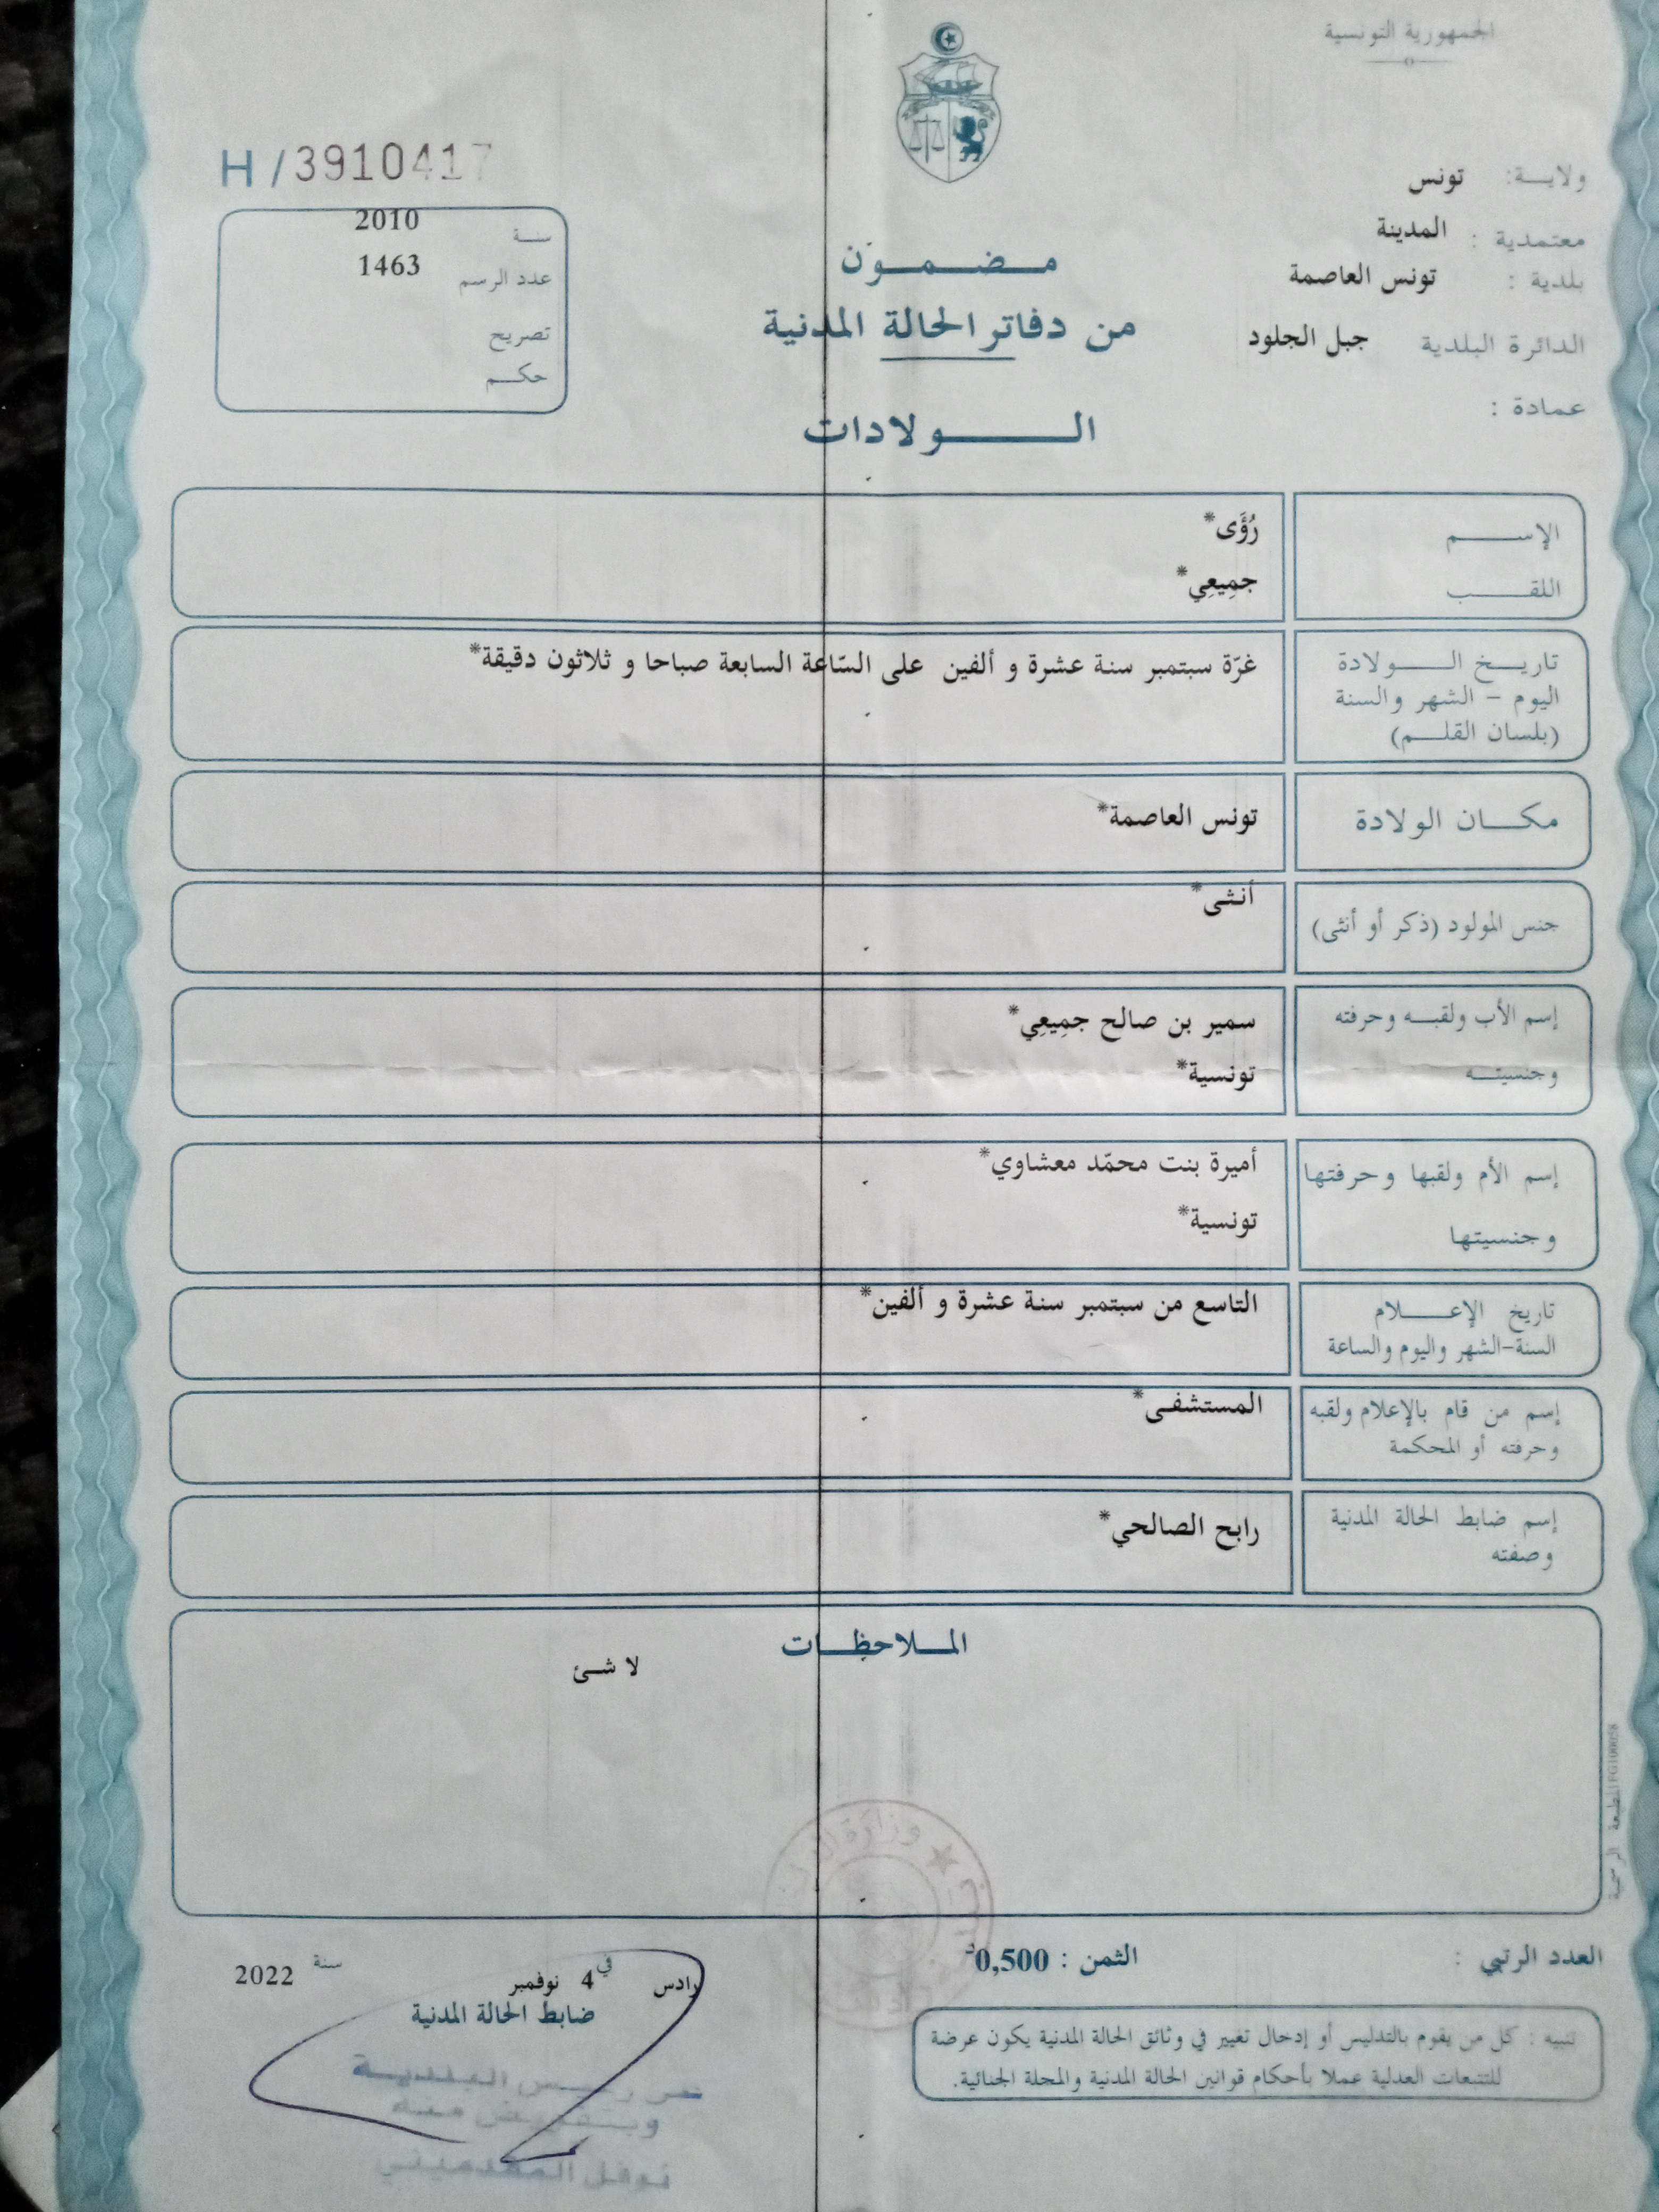 الجمهورية التونسية
ولايـــة: تونس
معتمدية : المدينة
بلدية : تونس العاصمة
الدائرة البلدية جبل الجلود
عمادة :
H / 3910417
سنـة 2010
عدد الرسم 1463
تصريح
حكـم
مـضـمـون
من دفاتر الحالة المدنية
الـولادات
الإسـم رُؤَى*
اللقـب جمِيعِي*
تاريـخ الـولادة غرّة سبتمبر سنة عشرة و ألفين على السّاعة السابعة صباحا و ثلاثون دقيقة*
اليوم – الشهر والسنة
(بلسان القلـم)
مكـان الولادة تونس العاصمة*
جنس المولود (ذكر أو أنثى) أنثى*
إسم الأب ولقبـه وحرفته سمير بن صالح جمِيعِي*
وجنسيتـه تونسية*
إسم الأم ولقبها وحرفتها أميرة بنت محمّد معشاوي*
وجنسيتها تونسية*
تاريخ الإعـلام التاسع من سبتمبر سنة عشرة و ألفين*
السنة-الشهر واليوم والساعة
إسم من قام بالإعلام ولقبه المستشفى*
وحرفته أو المحكمة
إسم ضابط الحالة المدنية رابح الصالحي*
وصفته
المـلاحظـات
لا شئ
المطبعة الرسمية
العدد الرتبي :
الثمن : 0,500د
رادس في 4 نوفمبر سنة 2022
ضابط الحالة المدنية
تنبيه : كل من يقوم بالتدليس أو إدخال تغيير في وثائق الحالة المدنية يكون عرضة
للتتبعات العدلية عملا بأحكام قوانين الحالة المدنية والمجلة الجنائية.
رئيس البلديـة
وبتفويض منه